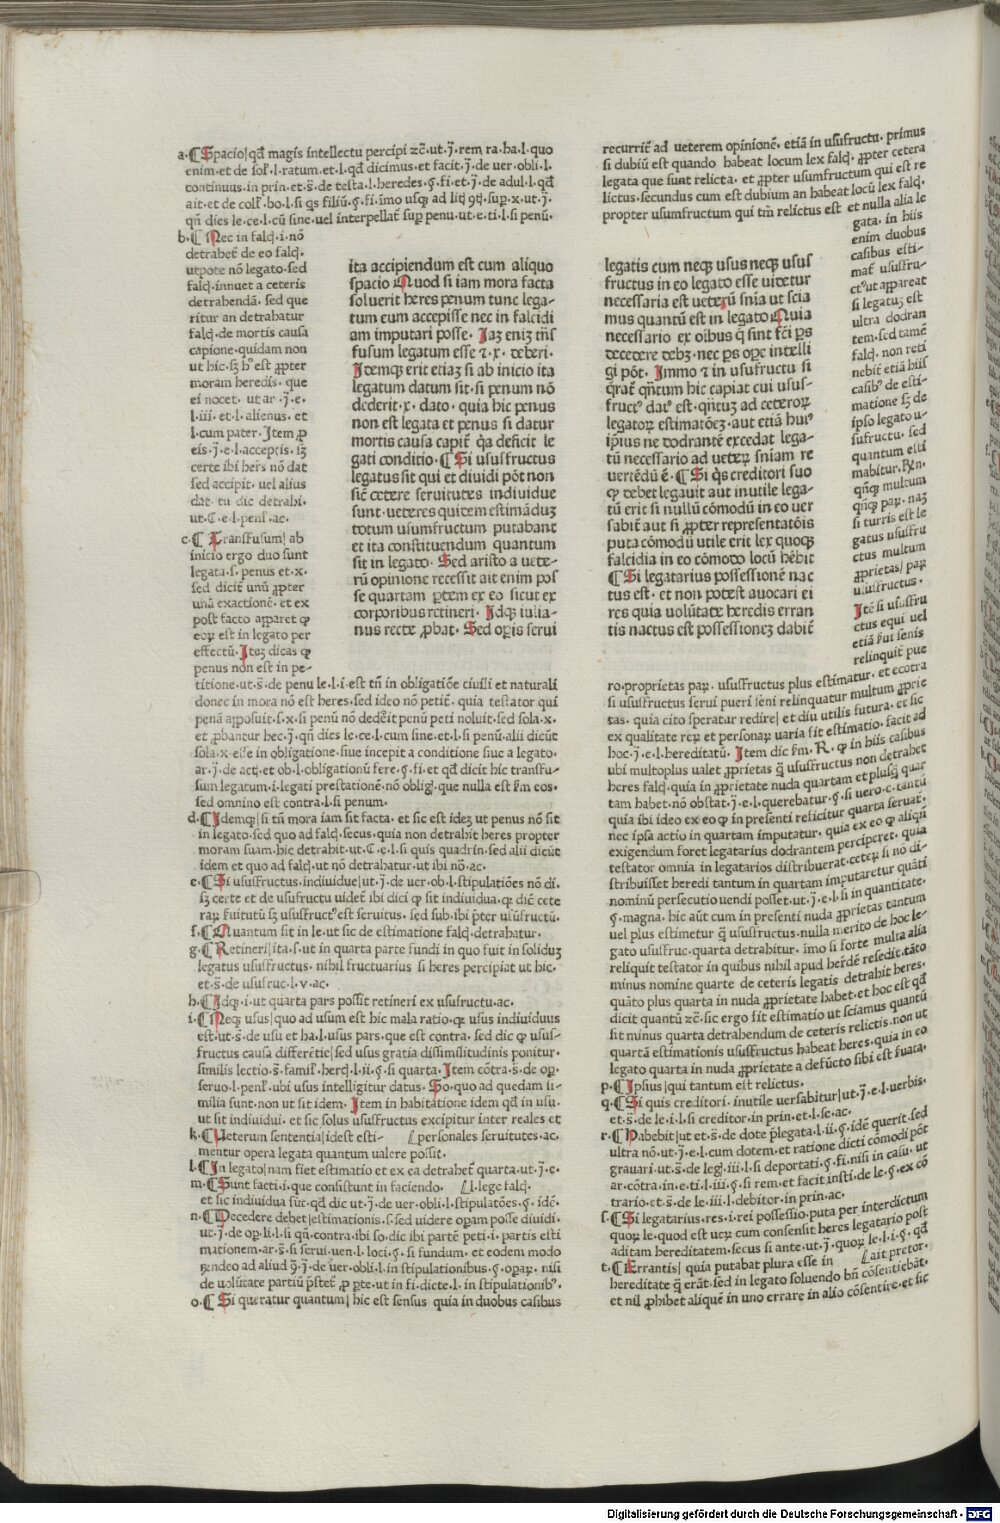 a.¶Spacio|qd̄ magis intellectu percipi zc̄.ut.j̄.rem ra.ha.l.quo
enim.et de sol̄.l.ratum.et.l.qd̄ dicimus.et facit.j̄.de uer.obli.l.
continuus.in prin.et.s̄.de testa.l.heredes.§.fi.et.j̄.de adul.l.qd̄
ait.et de coll̄.bo.l.si q̄s filiū.§.fi.imo usq̄ ad litis
qn̄ dies le.ce.l.cū sine.uel interpellat̄ sup penu.ut.e.ti.l.si penū.
b.¶Nec in falq̄.i.nō
detrahet̄ de eo falq̄.
utpote nō legato.sed
falq̄.innuet a ceteris
detrahendā.sed que
ritur an detrahatur
falq̄.de mortis causa
capione.quidam non
ut hic.sꝫ hꝰ est ꝓpter
moram heredis.que
ei nocet.ut ar.j̄.e.
l.iii.et.l.alienus.et
l.cum pater.Item ꝓ
eis.j̄.e.l.acceptis.iꝫ
certe ibi her̄s nō dat
sed accipit.uel alius
dat.tu dic detrahi.
ut.C.e.l.penl̄.ac.
c.¶Transfusum|ab
inicio ergo duo sunt
legata.s.penus et.x.
sed dicit̄ unū ꝓpter
unā exactionē.et ex
post facto apparet ꝙ
eoꝝ est in legato per
effectū.Iteꝫ dicas ꝙ
penus non est in pe-
titione.ut.s̄.de penu le.l.i.est tn̄ in obligatiōe ciuili et naturali
donec in mora nō est heres.sed ideo nō petit̄.quia testator qui
penā apposuit.s.x.si penū nō dedeit penū peti noluit.sed sola.x.
et ꝓbantur hec.j̄.qn̄ dies le.ce.l.cum sine.et.l.si penū.alii dicūt
sola.x.esse in obligatione.siue incepit a conditione siue a legato.
ar.j̄.de act.et ob.l.obligationū fere.§.fi.et qd̄ dicit hic transfu-
sum legatum.i.legati prestationē.nō obliḡ.que nulla est s̄m eos.
sed omnino est contra.l.si penum.
d.¶Idemꝙ|si tn̄ mora iam sit facta.et sic est ideꝫ ut penus nō sit
in legato.sed quo ad falq̄.secus.quia non detrahit heres propter
moram suam.hic detrahit.ut.C.e.l.si quis quadrin.sed alii dicūt
idem et quo ad falq̄.ut nō detrahatur.ut ibi nō.ac.
e.¶Si ususfructus.indiuidue|ut.j̄.de uer.ob.l.stipulatiōes nō di.
sꝫ certe et de usufructu uidet̄ ibi dici ꝙ sit indiuidua.ꝙ dic̄ cete
raꝝ s̄uitutū sꝫ ususfructꝰ est seruitus.sed sub.ibi p̄ter usūfructū.
f.¶Quantum sit in le.ut sic de estimatione falq̄.detrahatur.
g.¶Retineri|ita.s.ut in quarta parte fundi in quo fuit in soliduꝫ
legatus ususfructus.nihil fructuarius si heres percipiat ut hic.
et.s̄.de usufruc.l.v.ac.
h.¶Idꝙ.i.ut quarta pars possit retineri ex usufructu.ac.
i.¶Neꝙ usus|quo ad usum est hic mala ratio.ꝙ usus indiuiduus
est.ut.s̄.de usu et ha.l.usus pars.que est contra.sed dic ꝙ usus-
fructus causa differētie|sed usus gratia dissimilitudinis ponitur.
similis lectio.s̄.famil̄.herc̄.l.ii.§.si quarta.Item cōtra.s̄.de oꝑ.
seruo.l.penl̄.ubi usus intelligitur datus.So.quo ad quedam si-
milia sunt.non ut sit idem.Item in habitatione idem qd̄ in usu.
ut sit indiuidui.et sic solus ususfructus excipitur inter reales et
k.¶Ueterum sententia|idest esti- personales seruitutes.ac.
mentur opera legata quantum ualere possit.
l.¶In legato|nam fiet estimatio et ex ea detrahet̄ quarta.ut.j̄.e.
m.¶Sunt facti.i.que consistunt in faciendo. l.lege falq̄.
et sic indiuidua sūt.qd̄ dic ut.j̄.de uer.obli.l.stipulatōes.§.idē.
n.¶Decedere debet|estimationis.s.sed uidere opam posse diuidi.
ut.j̄.de op.li.l.si qn̄.contra.ibi so.dic ibi partē peti.i.partis esti
mationem.ar.s̄.si serui.uen.l.loci.§.si fundum.et eodem modo
rn̄deo ad aliud q̄.j̄.de uer.obli.l.in stipulationibus.§.opaꝝ.nisi
de uolūtate partiū p̄stet̄ ꝓ ꝑte.ut in fi.dicte.l.in stipulationibꝰ.
o.¶Si queratur quantum|hic est sensus quia in duobus casibus
ita accipiendum est cum aliquo
spacio Quod si iam mora facta
soluerit heres penum tunc lega-
tum eum accepisse nec in falcidi
am imputari posse.Iaꝫ eniꝫ trn̄s
fusum legatum esse ⁊.x.deberi.
Idemꝙ erit etiaꝫ si ab inicio ita
legatum datum sit.si penum nō
dederit.x.dato.quia hic penus
non est legata et penus si datur
mortis causa capit̄ q̄a deficit le
gati conditio.¶Si ususfructus
legatus sit qui et diuidi pōt non
siē cetere seruitutes indiuidue
sunt.ueteres quidem estimāduꝫ
totum usumfructum putabant
et ita constituendum quantum
sit in legato.Sed aristo a uete-
rū opinione recessit ait enim pos
se quartam ꝑtem ex eo sicut ex
corporibus retineri.Idꝙ iulia-
nus recte ꝓbat.Sed oꝑis serui
recurrit̄ ad ueterem opinionē.etiā in usufructu.primus
si dubiū est quando habeat locum lex falq̄.ꝓpter cetera
legata que sunt relicta.et ꝓpter usumfructum qui est re
lictus.secundus cum est dubium an habeat locū lex falq̄.
propter usumfructum qui tm̄ relictus est et nulla alia le
gata.in hiis
enim duobus
casibus esti-
mat̄ ususfru-
ctꝰ.ut appareat
si legatuꝫ est
ultra dodran
tem.sed tamē
falq̄.non reti
nebit̄ etiā hiis
casibꝰ de esti-
matione sꝫ de
ipso legato u-
sufructu.sed
quantum esti
mabitur.Rn̄.
qn̄ꝙ multum
qn̄ꝙ paꝝ.naꝫ
si turris est le
gatus usufru
ctus multum
ꝓprietas|paꝝ
ususfructus.
Itē si usufru
ctus equi uel
etiā s̄ui senis
relinquit̄ pue
legatis cum neꝙ usus neꝙ usus
fructus in eo legato esse uidetur
necessaria est ueterū sn̄ia ut scia
mus quantū est in legato Quia
necessario ex oibus q̄ sint fcī ꝑs
decedere debꝫ.nec ꝑs oꝑe intelli
gi pōt.Immo ⁊ in usufructu si
q̄rat̄ qn̄tum hic capiat cui usus-
fructꝰ datꝰ est.qn̄tuꝫ ad ceteroꝝ
legatoꝝ estimatōeꝫ.aut etiā huiꝰ
ip̄ius ne dodrantē excedat lega-
tū necessario ad ueteꝝ sn̄iam re
uertēdū ē.¶Si q̄s creditori suo
ꝙ debet legauit aut inutile lega-
tū erit si nullū cōmodū in eo uer
sabit̄ aut si ꝓpter representatōis
puta cōmodū utile erit lex quoꝙ
falcidia in eo cōmodo locū hēbit
¶Si legatarius possessionē nac
tus est.et non potest auocari ei
res quia uolūtate heredis erran
tis nactus est possessioneꝫ dabit̄
ro.proprietas paꝝ.ususfructus plus estimatur.et ecōtra
si ususfructus serui pueri seni relinquatur multum ꝓprie
tas.quia cito speratur redire|et diu utilis futura.et sic
ex qualitate reꝝ et personaꝝ uaria fit estimatio.facit ad
hoc.j̄.e.l.hereditatū.Item dic s̄m.R.ꝙ in hiis casibus
ubi multoplus ualet ꝓprietas q̄ ususfructus non detrahet
heres falq̄.quia in ꝓprietate nuda quartam et plusꝙ quar
tam habet.nō obstat.j̄.e.l.querebatur.§.si uero.c.tantū
quia ibi ideo ex eo ꝙ in presenti reficitur quarta seruat.
nec ipsa actio in quartam imputatur.quia ex eo ꝙ aliqn̄
exigendum foret legatarius dodrantem perciperet.quia
testator omnia in legatorios distribuerat.ceteꝝ si nō di-
stribuisset heredi tantum in quartam imputaretur quāti
nominū persecutio uendi posset.ut.j̄.e.l.si in quantitate.
§.magna.hic aūt cum in presenti nuda ꝓprietas tantum
uel plus estimetur q̄ ususfructus.nulla merito de hoc le-
gato ususfruc.quarta detrahitur.imo si forte multa alia
reliquit testator in quibus nihil apud herdē resedit.tāto
minus nomine quarte de ceteris legatis detrahit heres.
quāto plus quarta in nuda ꝓprietate habet.et hoc est qd̄
dicit quantū zc̄.sic ergo fit estimatio ut sciamus quantū
sit minus quarta detrahendum de ceteris relictis.non ut
quartā estimationis ususfructus habeat heres.quia in eo
legato quarta in nuda ꝓprietate a defūcto sibi est s̄uata.
p.¶Ipsius|qui tantum est relictus.
q.¶Si quis creditori.inutile uersabitur|ut.j̄.e.l.uerbis.
et.s̄.de le.i.l.si creditor.in prin.et.l.se.ac.
r.¶Habebit|ut et.s̄.de dote p̄legata.l.ii.§.idē querit.sed
ultra nō.ut.j̄.e.l.cum dotem.et ratione dicti cōmodi pōt
grauari.ut.s̄.de leḡ.iii.l.si deportati.§.fi.nisi in casu.ut
ar.cōtra.in.e.ti.l.iii.§.si rem.et facit insti.de le.§.ex cō
trario.et.s̄.de le.iii.l.debitor.in prin.ac.
s.¶Si legatarius.res.i.rei possessio.puta per interdictum
quoꝝ le.quod est ueꝝ cum consensit heres legatario post
aditam hereditatem.secus si ante.ut.j̄.quoꝝ le.l.i.§.qd̄
t.¶Errantis|quia putabat plura esse in ait pretor.
hereditate q̄ erāt.sed in legato soluendo bn̄ cōsentiebat.
et nil ꝓhibet aliquē in uno errare in alio cōsentire.et sic
Digitalisierung gefördert durch die Deutsche Forschungsgemeinschaft - DFG